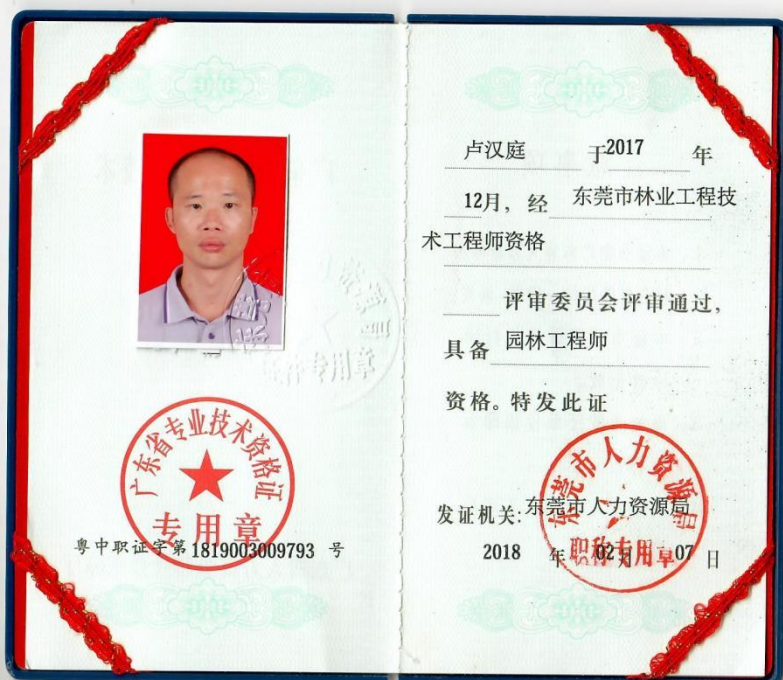 广东省专业技术资格证
专用章
粤中职证字第 1819003009793 号
卢汉庭 于2017 年
12月，经 东莞市林业工程技
术工程师资格
评审委员会评审通过，
具备 园林工程师
资格。特发此证
东莞市人力资源局
发证机关：东莞市人力资源局
职称专用章
2018 年 02月 07日